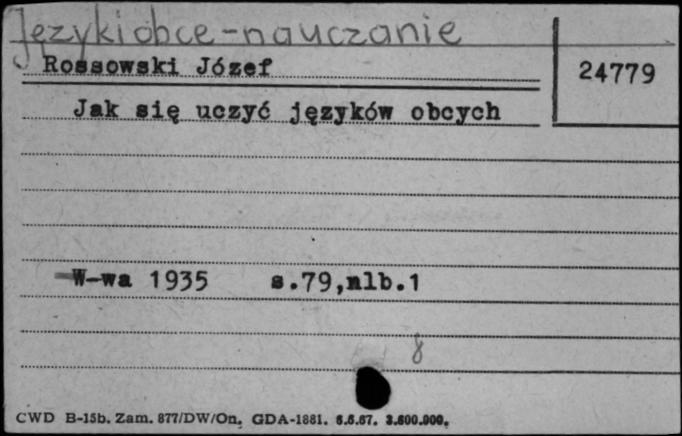 Języki obce - nauczanie
Rossowski Józef
24779
Jak się uczyć języków obcych
W-wa 1935 s.79,nlb.1
8
CWD B-15b. Zam. 877/DW/On. GDA-1881. 6.6.67. 3.600.000.